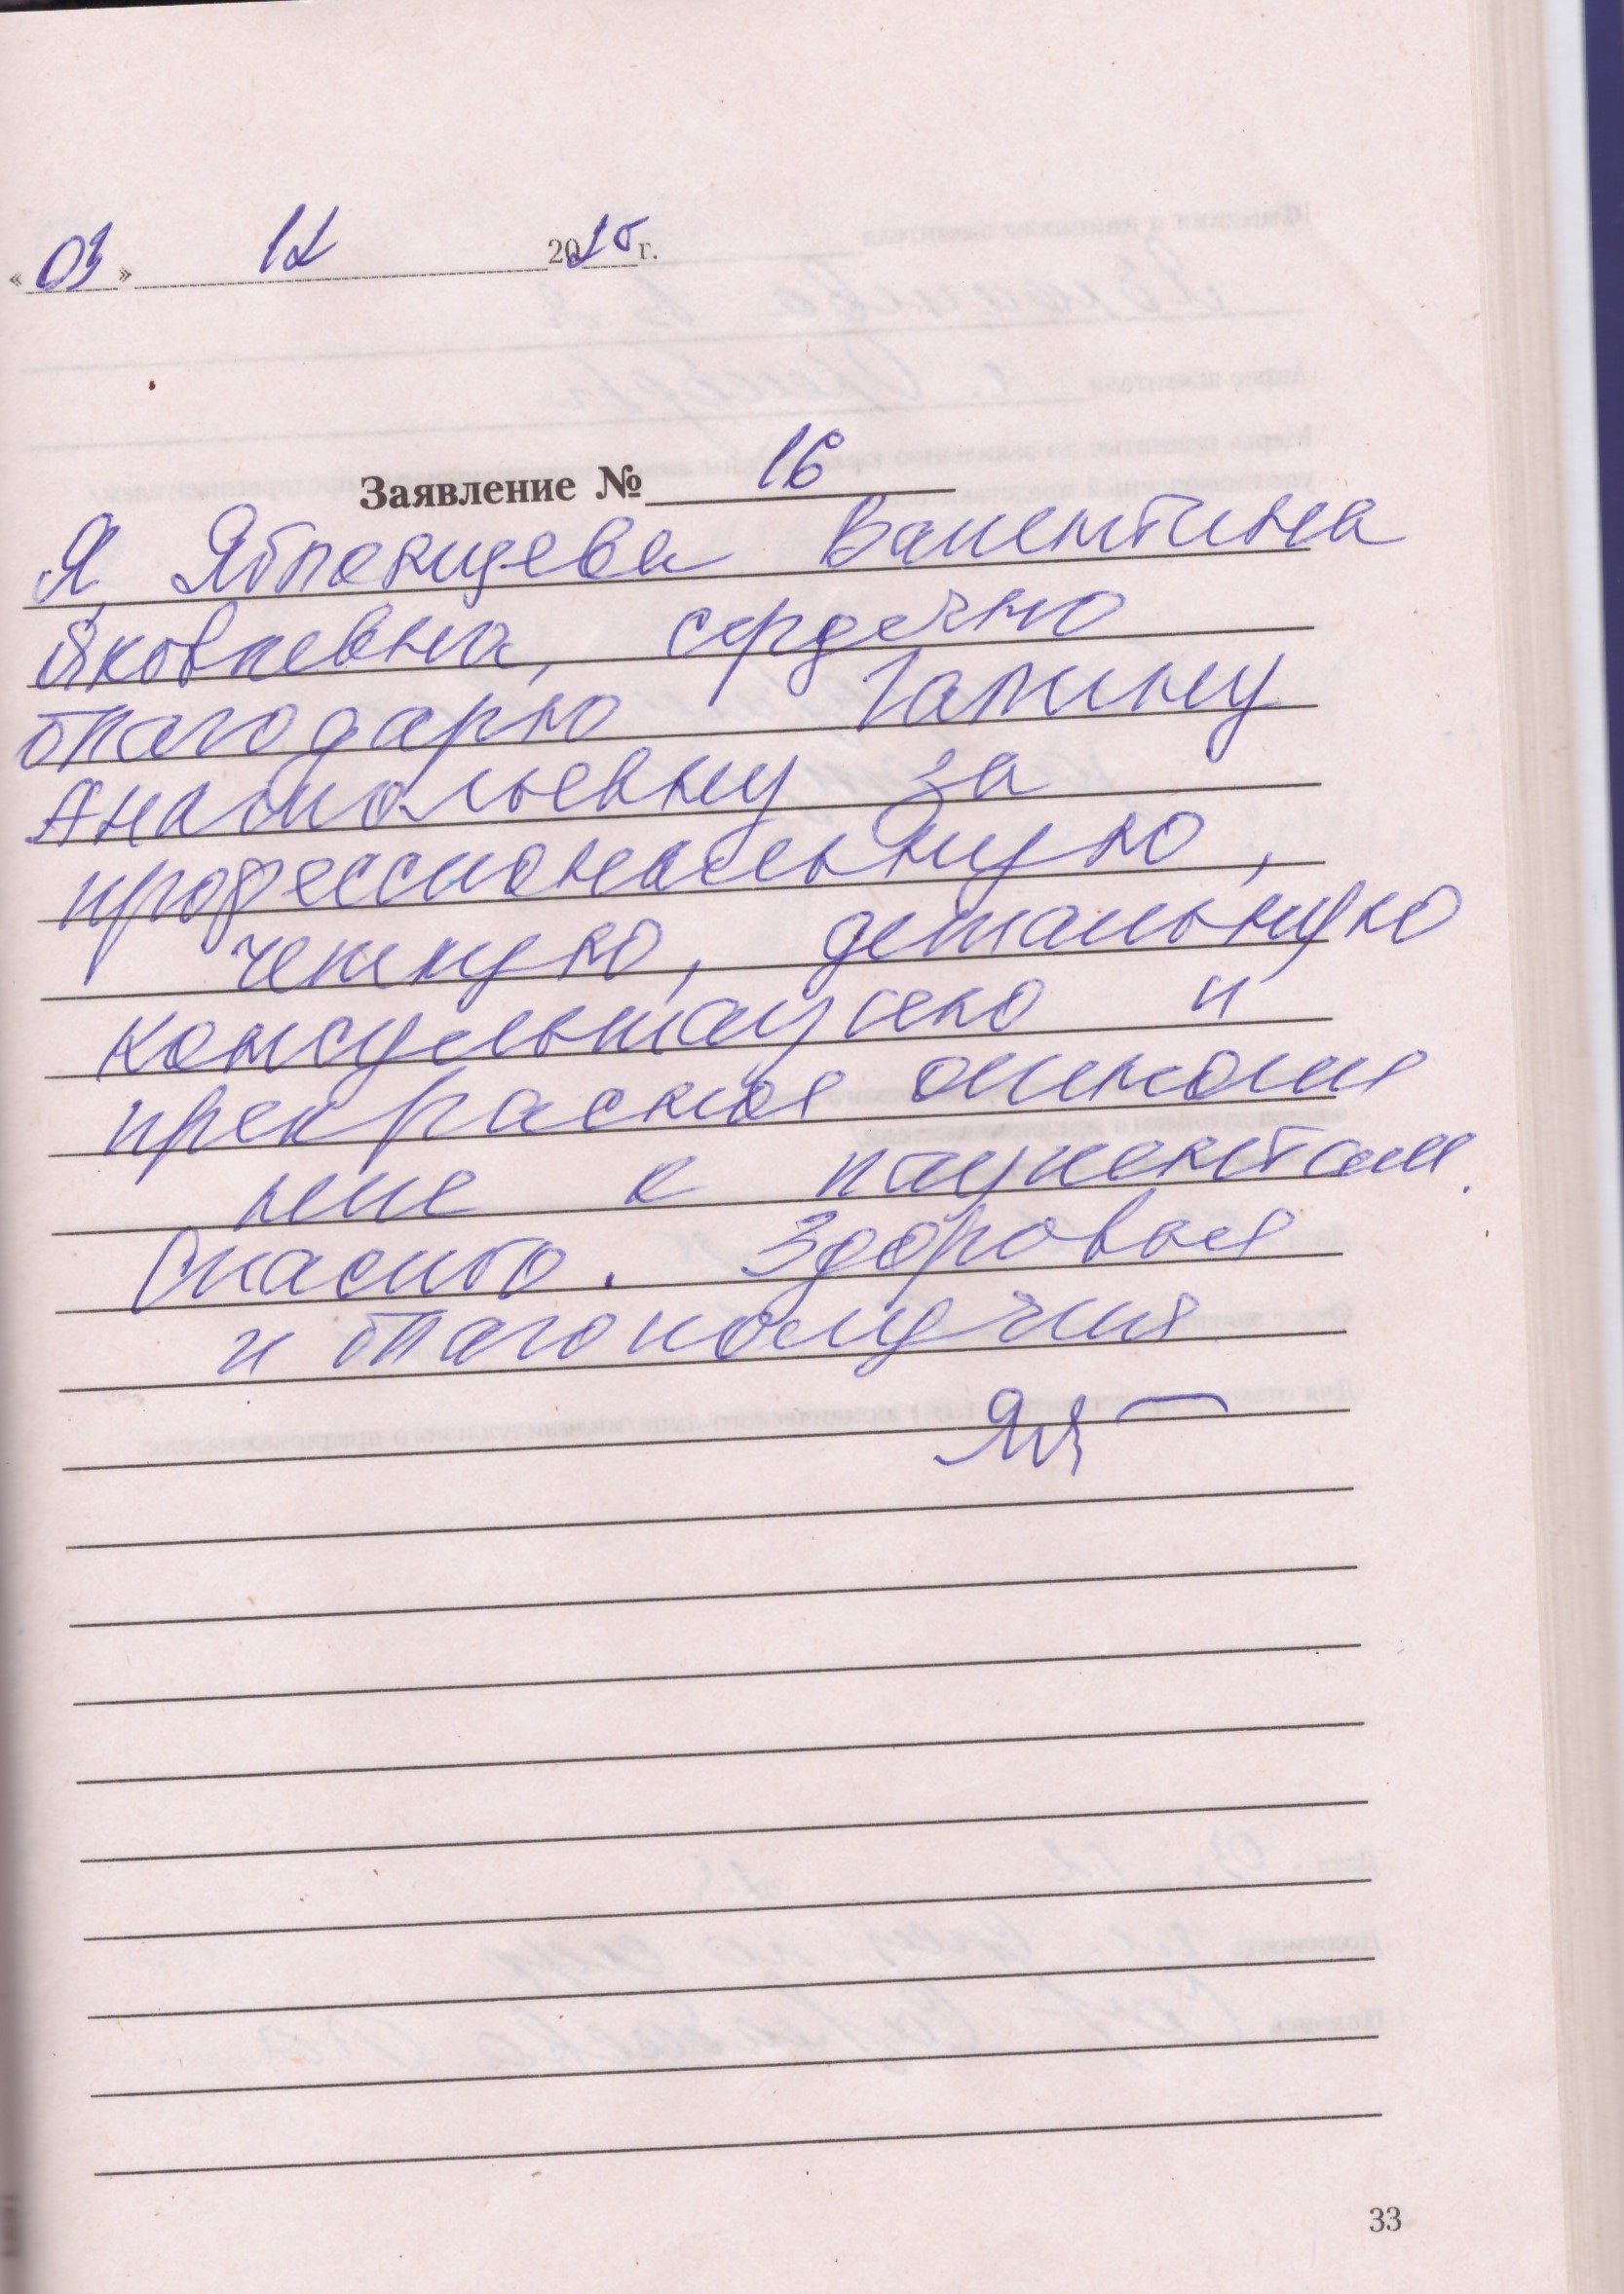 «03» 12 2025 г.
Заявление № 16
Я, Яблонцева Валентина
Яковлевна, сердечно
благодарю Галину
Анатольевну за
профессиональную,
четкую, детальную
консультацию и
прекрасная отноше
ние к пациентам.
Спасибо. Здоровья
и благополучия
33